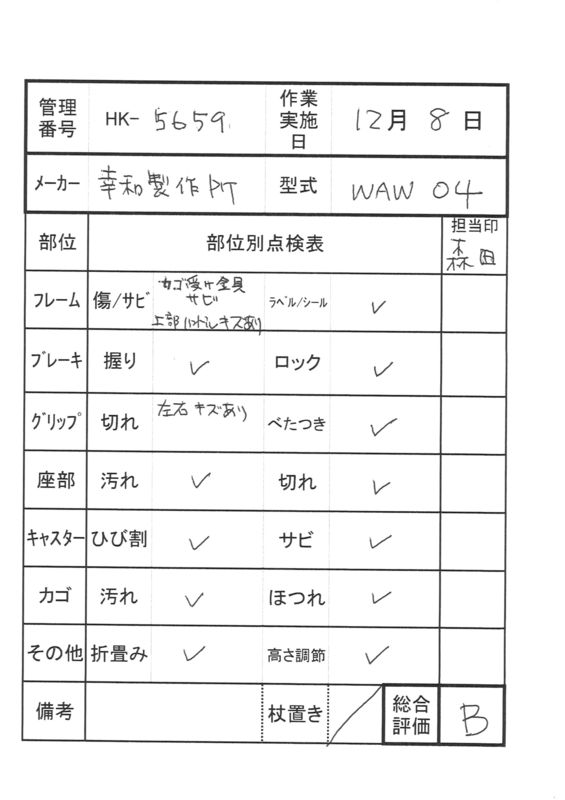 管理番号 HK- 5659 作業実施日 12月 8日
メーカー 幸和製作所 型式 WAW 04
部位 部位別点検表 担当印
森田
フレーム 傷/サビ カゴ受け金具 サビ 上部ハンドルキズあり ラベル/シール ✓
ブレーキ 握り ✓ ロック ✓
グリップ 切れ 左右 キズあり べたつき ✓
座部 汚れ ✓ 切れ ✓
キャスター ひび割 ✓ サビ ✓
カゴ 汚れ ✓ ほつれ ✓
その他 折畳み ✓ 高さ調節 ✓
備考 杖置き / 総合評価 B